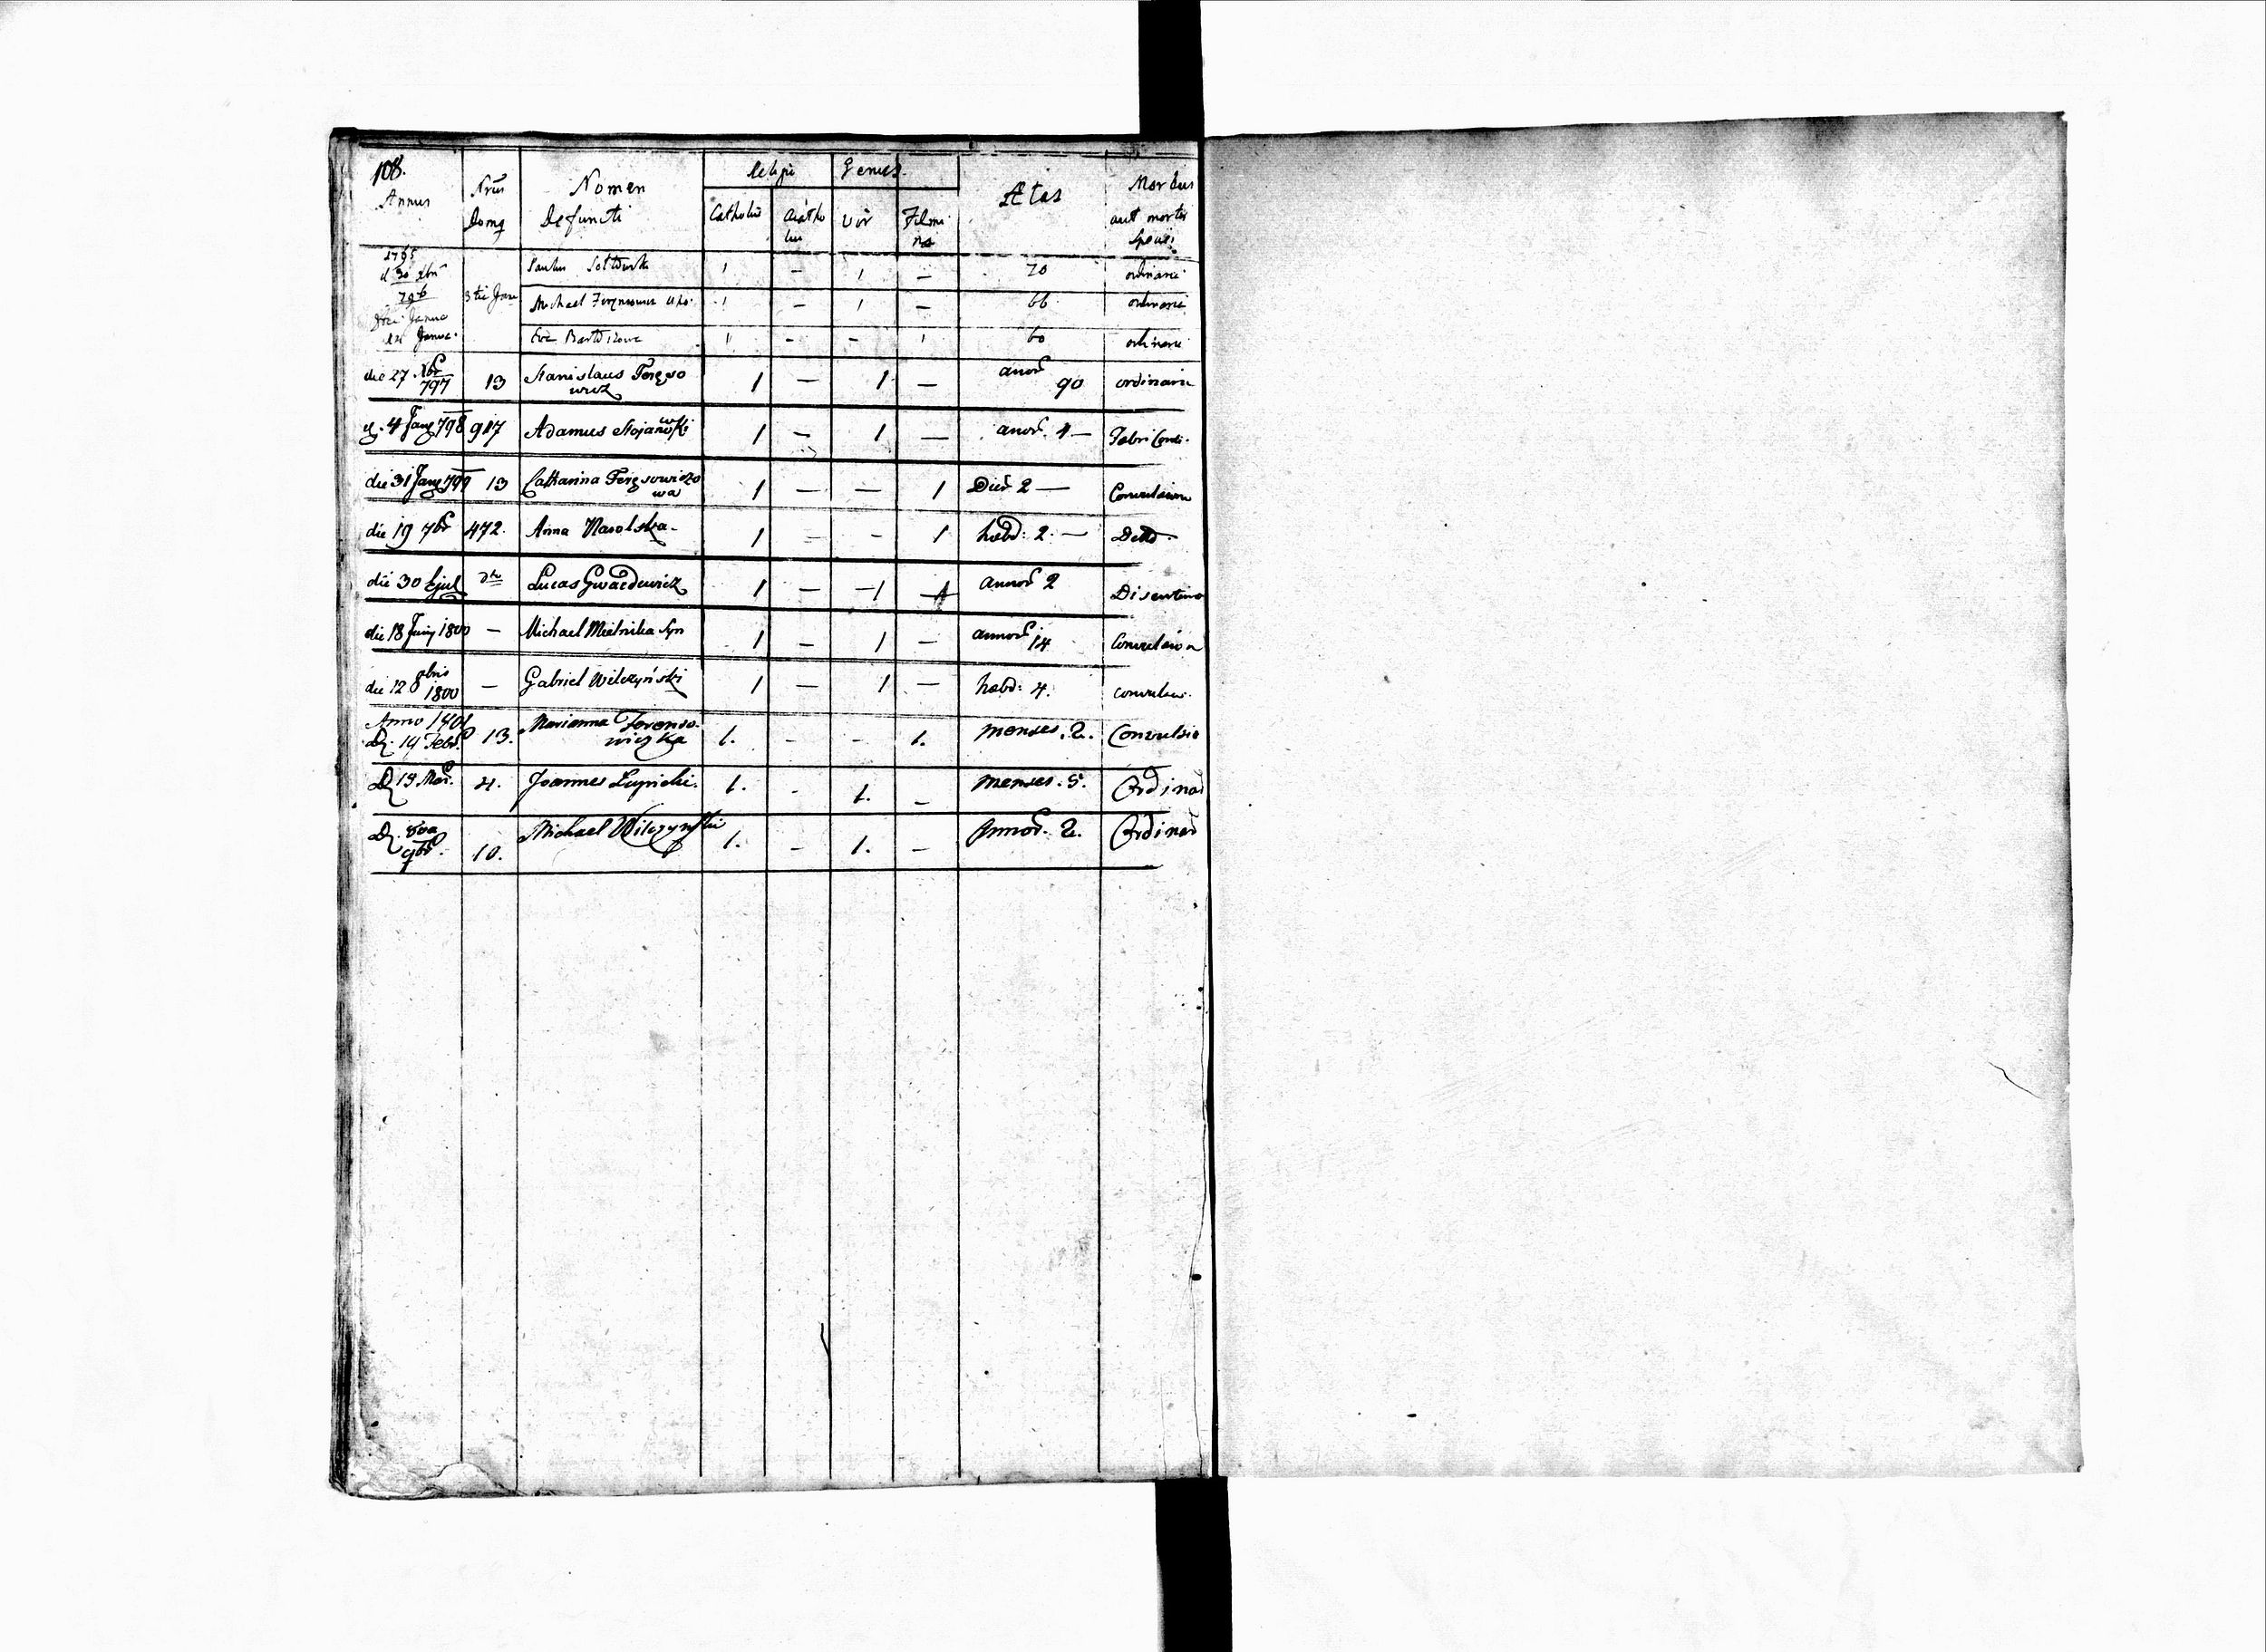 108.
Annus
Nrus Domq
Nomen Defuncti
Religii
Genus.
Catholici
Acatholici
Vir
Fæmina
Ætas
Morbus aut mortis Speciei
1795
d 30 xbri 3tii Janu 1 — 1 — 70 ordinarii
796 Michael 1 — 1 — 66 ordinarii
Janua
Janua. Eva 1 — — 1 60 ordinarii
die 27 Xbr 797 13 Stanislaus Feręsowicz 1 — 1 — anor 90 ordinarii
d. 4 Janq 798 917 Adamus Stojanowski 1 — 1 — anor. 4 —
die 31 Janq 799 13 Catharina Feręsowiczowa 1 — — 1 Dier 2 — Convulsion
die 19 7br 472. Anna Narolska 1 — — 1 hebd: 2. — Detto.
die 30 Ejul dto Lucas Gwardewicz 1 — 1 — annor 2
die 18 Junij 1800 — Michael Mielnika Syn 1 — 1 — annor 14 Convulsion
die 12 8bris 1800 — Gabriel Wilczyński 1 — 1 — hebd: 4. convulsio.
Anno 1801
D. 14 Febr. 13. Marianna Ferensowiczka 1. - - 1. menses. 2. Convulsio
D. 19 Mar. 4. Joannes Łupicki. 1. - 1. - menses. 5. Ordinar
D. 8va 9br. 10. Michael Wilczynski 1. - 1. - Annor. 2. Ordinar